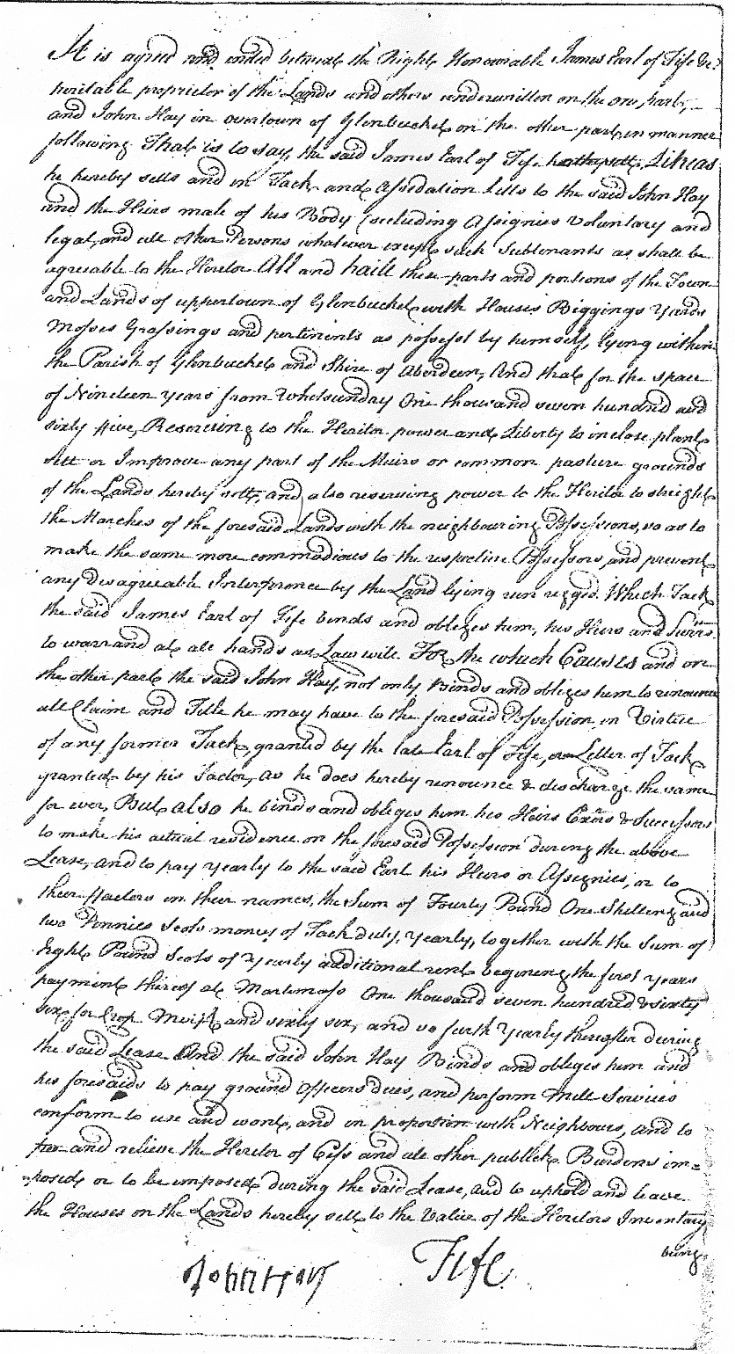 It is agreed and ended betwixt the Right Honourable James Earl of Fife &c.
heritable proprietor of the Lands and others underwritten on the one part,
and John Hay in overtown of Glenbucket on the other part, in manner
following That is to say, the said James Earl of Fife Likeas
he hereby setts and in Tack and Assedation Letts to the said John Hay
and the Heirs male of his Body (secluding Assignies Voluntary and
legal, and all other Persons whatever except such Subtenants as shall be
agreable to the Heretor All and haill these parts and portions of the Town
and Lands of uppertown of Glenbucket with Houses Biggings Yards
Mosses Grassings and pertinents as possest by himself, lying within
the Parish of Glenbucket and Shire of Aberdeen, And that for the space
of Nineteen Years from Whitsunday One thousand seven hundred and
sixty five, Reserving to the Heritor power and Liberty to inclose plant
sett or Improve any part of the Muirs or common pasture grounds
of the Lands hereby sett, and also reserving power to the Heritor to streight
the Marches of the foresaid Lands with the neighbouring Possessions, so as to
make the same more commodious to the respective Possessors, and prevent
any disagreable Interference by the Land lying run rigged. Which Tack
the said James Earl of Fife binds and obleges him, his Heirs and Succrs.
to warrand at all hands as Law will. For the which Causes and on
the other part the said John Hay, not only Binds and obleges him to renounce
all Claim and Title he may have to the foresaid Possession, in Virtue
of any former Tack, granted by the late Earl of Fife, or Letter of Tack
granted by his Factor, as he does hereby renounce & discharge the same
for ever, But also he binds and obleges him his Heirs Exrs & Successors
to make his actual residence on the foresaid Possession during the above
Lease, and to pay yearly to the said Earl his Heirs or Assignies, or to
their ffactors in their names, the Sum of Fourty Pound One Shilling and
two Pennies Scots money of Tack duty, yearly, together with the Sum of
Eight Pound Scots of Yearly additional rent begining the first years
payment thereof at Martimass One thousand seven hundred & sixty
six for Crop and sixty six, and so furth Yearly thereafter during
the said Lease And the said John Hay Binds and obleges him and
his foresaids to pay ground Officers dues, and perform Mill Services
conform to use and wont, and in proportion with Neighbours, and to
free and relieve the Heretor of Cess and all other publick Burdens im=
=posed or to be imposed during the said Lease, and to uphold and leave
the Houses on the Lands hereby sett to the Value of the Heretors Inventary
being
John Hay Fife